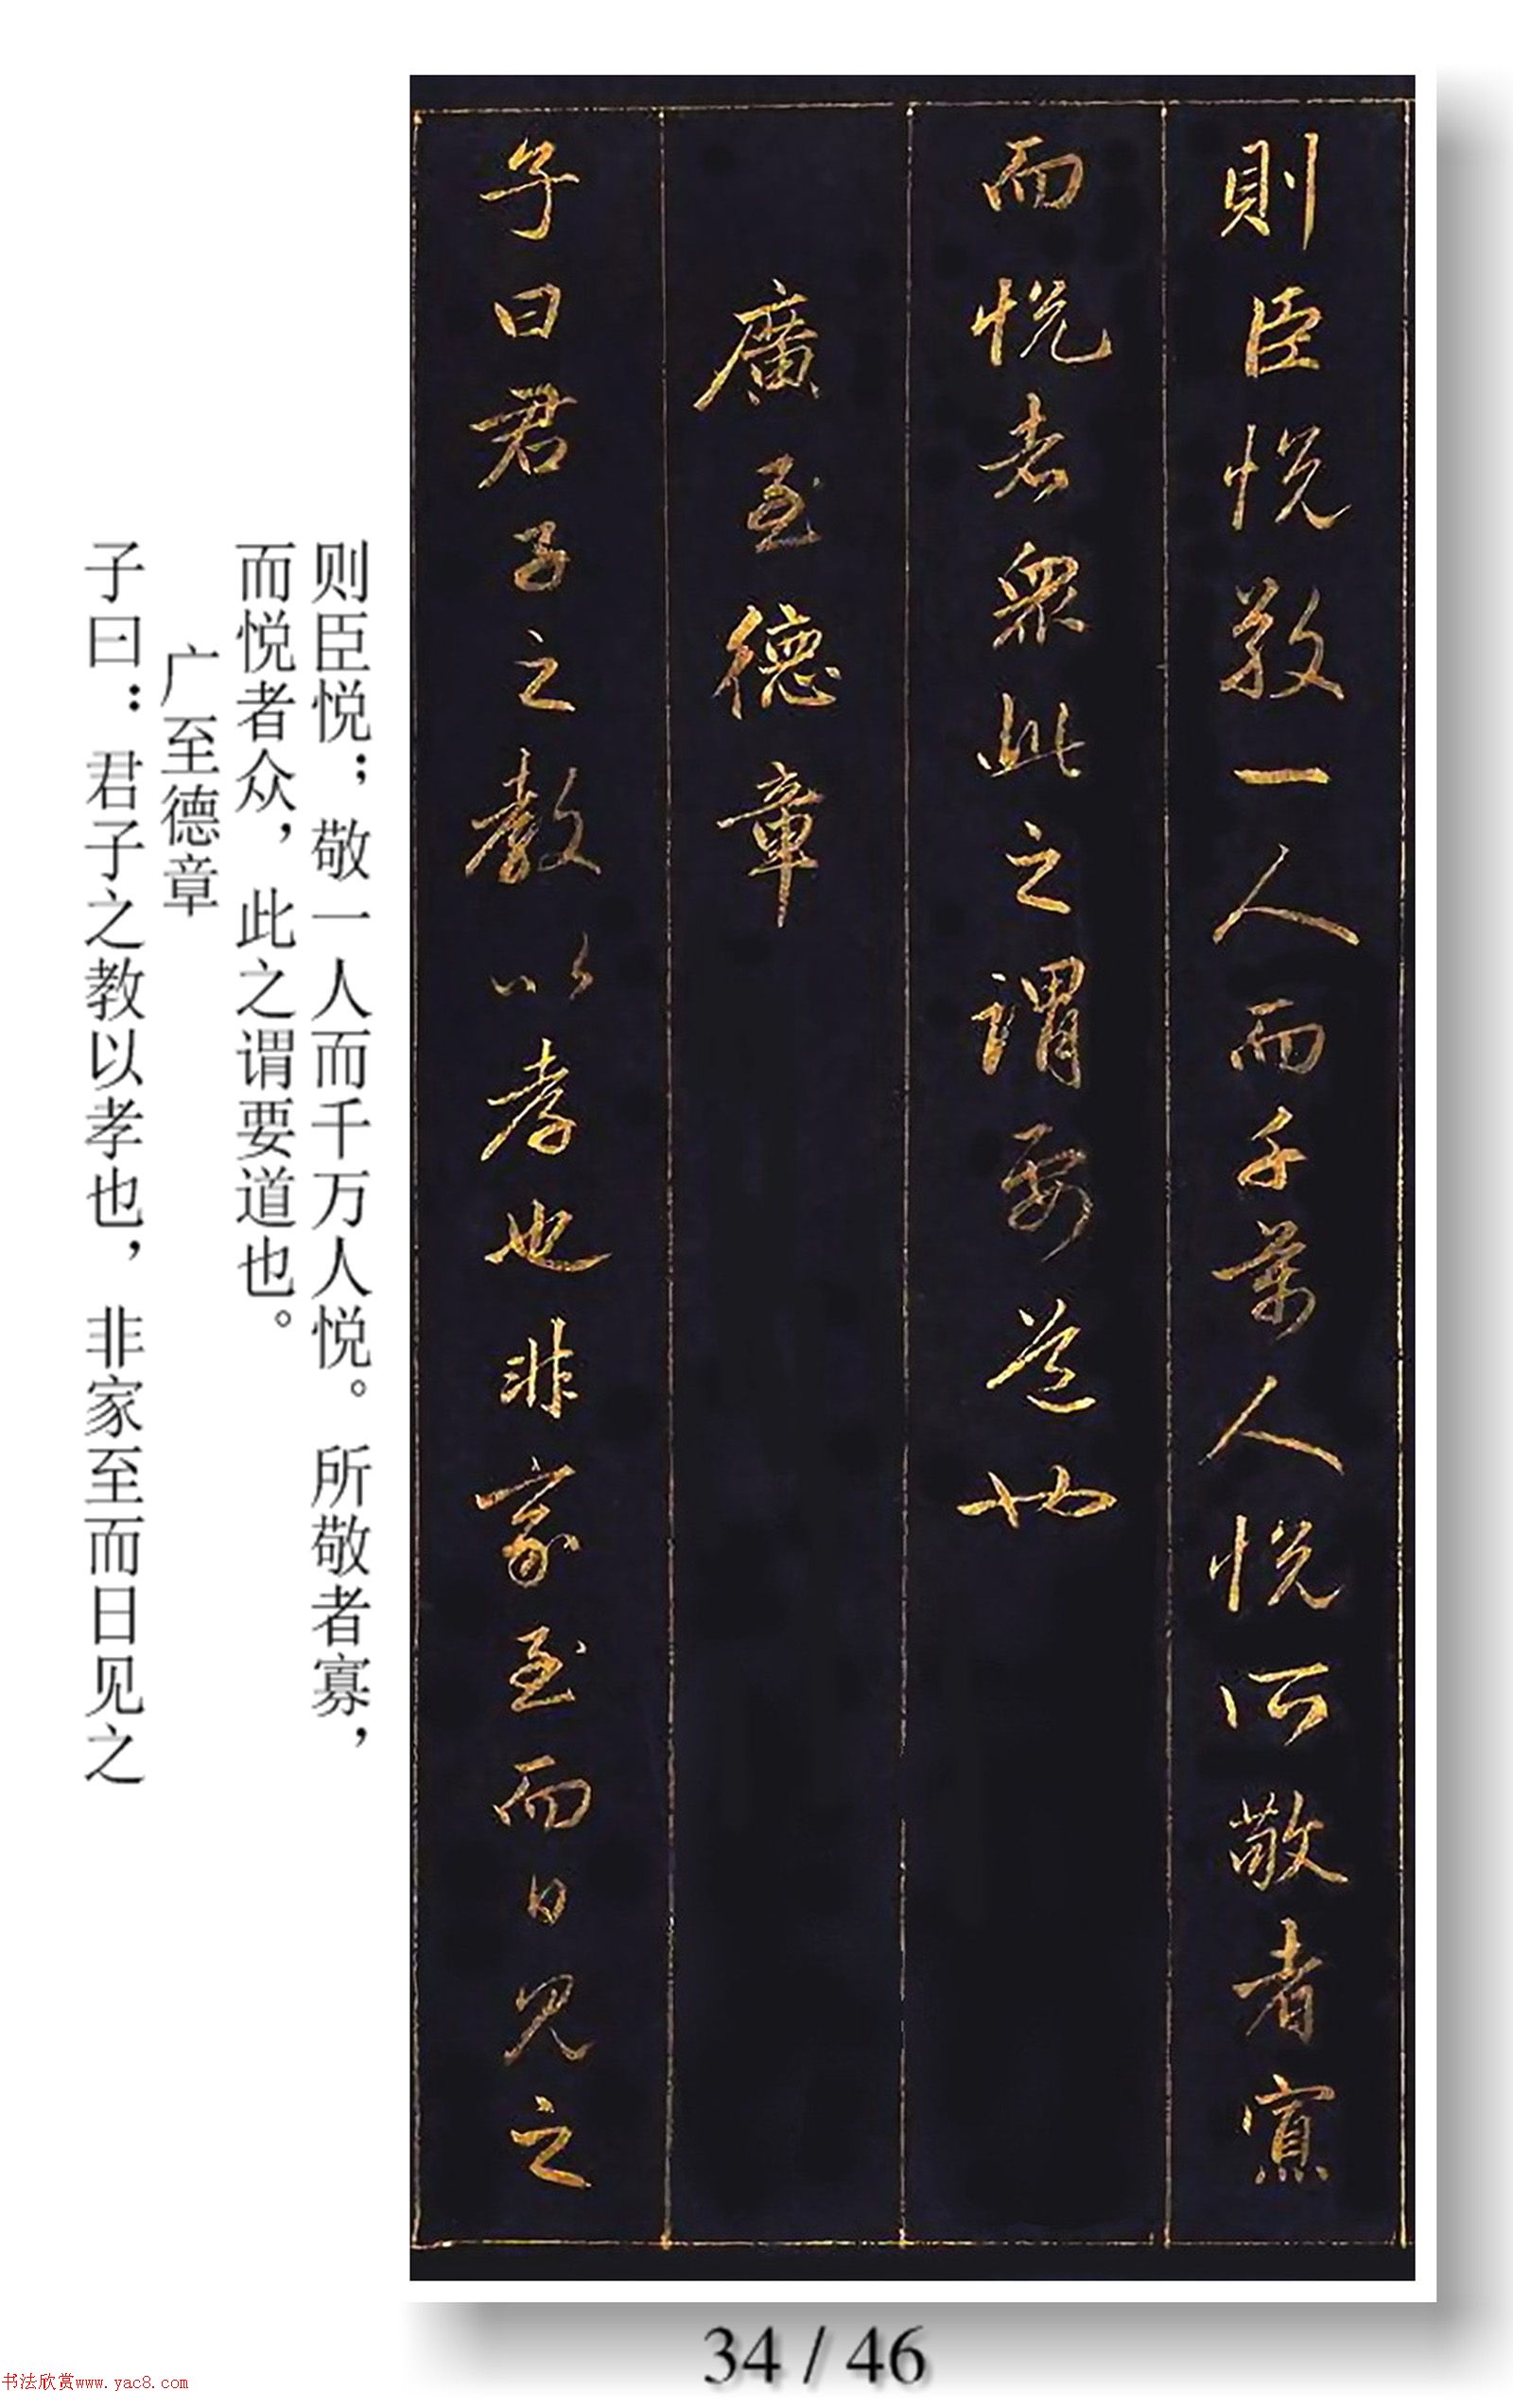 則臣悅敬一人而千萬人悅所敬者寡
而悅者眾此之謂要道也
廣至德章
子曰君子之教以孝也非家至而日見之
则臣悦；敬一人而千万人悦。所敬者寡，
而悦者众，此之谓要道也。
广至德章
子曰：君子之教以孝也，非家至而日见之
34 / 46
书法欣赏www.yac8.com